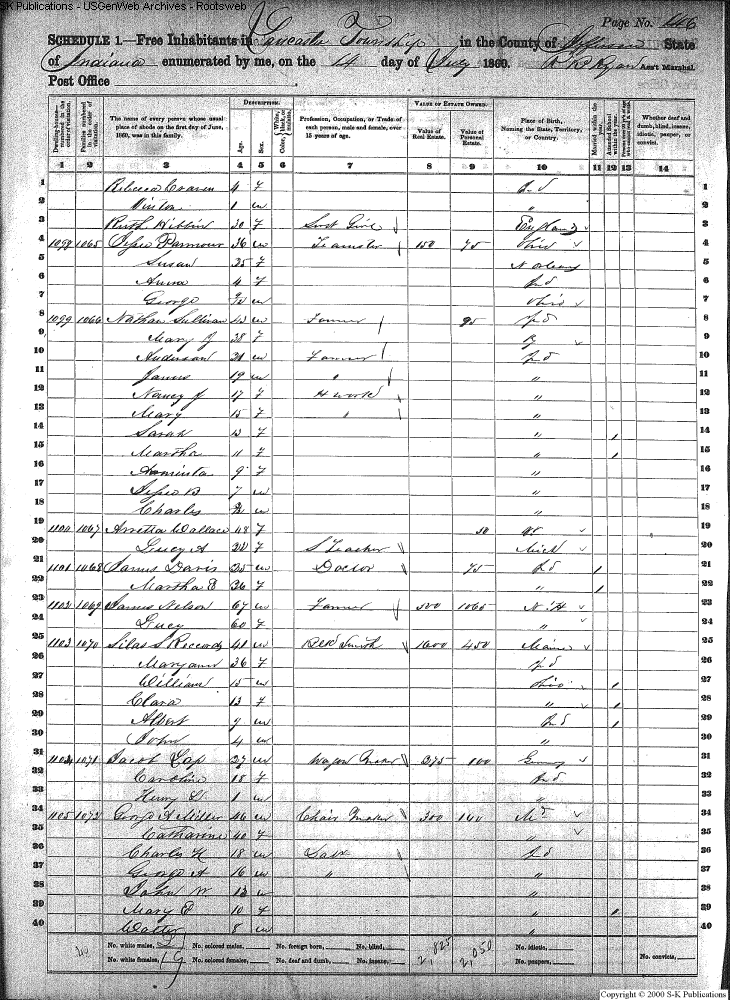 S-K Publications - USGenWeb Archives - Rootsweb
Page No. 146
SCHEDULE 1.—Free Inhabitants in Lancaster Township in the County of Jefferson State
of Indiana enumerated by me, on the 14 day of July 1860. Ryan Ass't Marshal.
Post Office
Dwelling-houses numbered in the order of visitation.
Families numbered in the order of visitation.
The name of every person whose usual place of abode on the first day of June, 1860, was in this family.
DESCRIPTION.
Age.
Sex.
Color, White, black, or mulatto.
Profession, Occupation, or Trade of each person, male and female, over 15 years of age.
VALUE OF ESTATE OWNED.
Value of Real Estate.
Value of Personal Estate.
Place of Birth, Naming the State, Territory, or Country.
Married within the year.
Attended School within the year.
Whether deaf and dumb, blind, insane, idiotic, pauper, or convict.
1 2 3 4 5 6 7 8 9 10 11 12 13 14
1 Rebecca Craven 4 f Ind 1
2 1 m " 2
3 Ruth 30 f Girl England 3
4 1098 1065 36 m Teamster 150 75 Ohio 4
5 Susan 35 f N Orleans 5
6 Anna 4 f Ind 6
7 George m Ohio 7
8 1099 1066 Nathan Sullivan 43 m Farmer 95 Ind 8
9 Mary J 38 f Ky 9
10 Anderson 21 m Farmer Ind 10
11 James 19 m " " 11
12 Nancy J 17 f H work " 12
13 Mary 15 f " " 13
14 Sarah 13 f " 14
15 Martha 11 f " 15
16 Arminta 9 f " 16
17 B 7 m " 17
18 Charles m " 18
19 1100 1067 Wallace 48 f 50 19
20 Lucy A f S Teacher Mich 20
21 1101 1068 James Davis 35 m Doctor 75 Ind 21
22 Martha E 26 f " 22
23 1102 1069 James Nelson 67 m Farmer 500 1065 N H 23
24 Lucy 60 f " 24
25 1103 1070 Silas S Records 41 m Blk Smith 1600 450 Maine 25
26 Maryann 36 f Ind 26
27 William 15 m Ohio 27
28 Clara 13 f " 28
29 Albert 9 m Ind 29
30 John 4 m " 30
31 1104 1071 Jacob Lap 27 m Wagon Maker 375 100 Germany 31
32 Caroline 18 f Ind 32
33 Henry L 1 m " 33
34 1105 1072 George A Miller 46 m Chair Maker 300 140 34
35 Catharine 40 f " 35
36 Charles H 18 m Ind 36
37 George A 16 m " " 37
38 John W 13 m " 38
39 Mary E 10 f " 39
40 Walter 8 m " 40
No. white males, No. colored males, No. foreign born, No. blind, 2,825 2,050 No. idiotic,
No. white females, 19 No. colored females, No. deaf and dumb, No. insane, No. paupers, No. convicts,
Copyright © 2000 S-K Publications